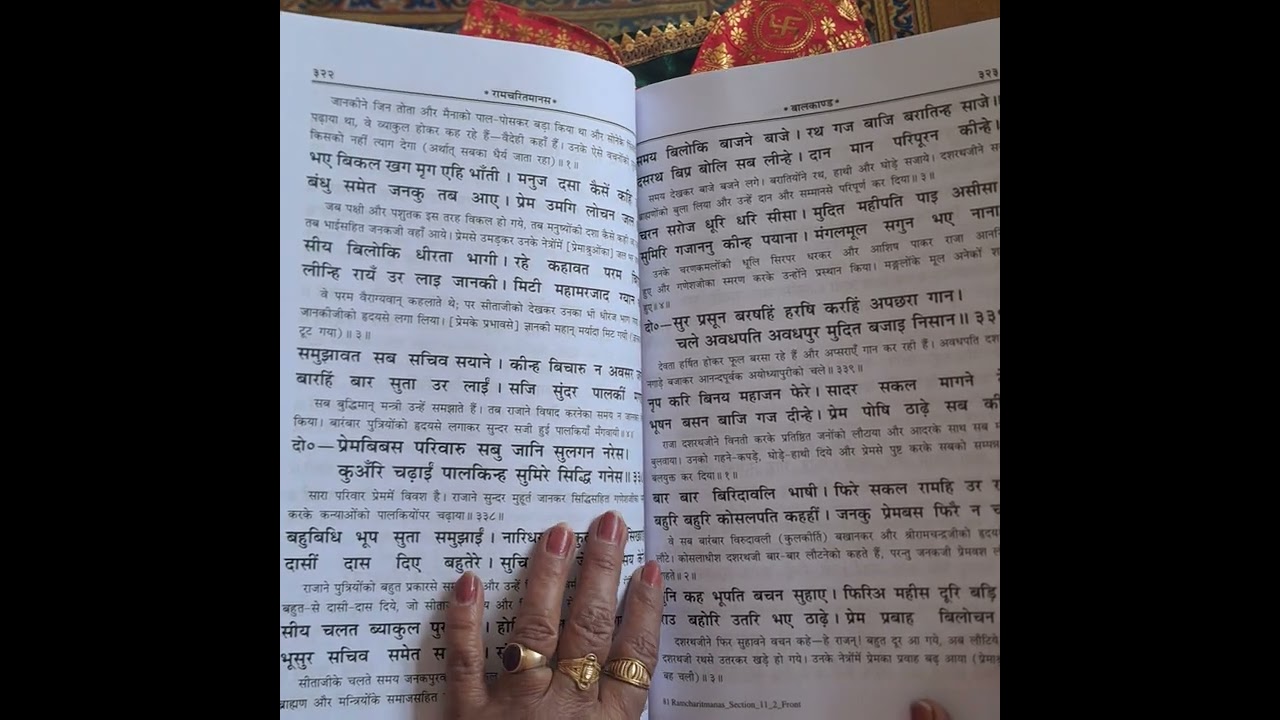 ३२२
* रामचरितमानस *
जानकीने जिन तोता और मैनाको पाल-पोसकर बड़ा किया था और सोनेके
पढ़ाया था, वे व्याकुल होकर कह रहे हैं—वैदेही कहाँ हैं। उनके ऐसे वचनोंको
किसको नहीं त्याग देगा (अर्थात् सबका धैर्य जाता रहा)॥१॥
भए बिकल खग मृग एहि भाँती। मनुज दसा कैसें कहि
बंधु समेत जनकु तब आए। प्रेम उमगि लोचन जल
जब पक्षी और पशुतक इस तरह विकल हो गये, तब मनुष्योंकी दशा कैसे कही
तब भाईसहित जनकजी वहाँ आये। प्रेमसे उमड़कर उनके नेत्रोंमें [प्रेमाश्रुओंका] जल
सीय बिलोकि धीरता भागी। रहे कहावत परम
लीन्हि रायँ उर लाइ जानकी। मिटी महामरजाद ग्यान
वे परम वैराग्यवान् कहलाते थे; पर सीताजीको देखकर उनका भी धीरज भाग
जानकीजीको हृदयसे लगा लिया। [प्रेमके प्रभावसे] ज्ञानकी महान् मर्यादा मिट गयी
टूट गया)॥३॥
समुझावत सब सचिव सयाने। कीन्ह बिचारु न अवसर
बारहिं बार सुता उर लाईं। सजि सुंदर पालकीं
सब बुद्धिमान् मन्त्री उन्हें समझाते हैं। तब राजाने विषाद करनेका समय न जानकर
किया। बारंबार पुत्रियोंको हृदयसे लगाकर सुन्दर सजी हुई पालकियाँ मँगवायीं॥४॥
दो०—प्रेमबिबस परिवारु सबु जानि सुलगन नरेस।
कुअँरि चढ़ाईं पालकिन्ह सुमिरे सिद्धि गनेस॥
सारा परिवार प्रेममें विवश है। राजाने सुन्दर मुहूर्त जानकर सिद्धिसहित गणेशजीका
करके कन्याओंको पालकियोंपर चढ़ाया॥३३८॥
बहुबिधि भूप सुता समुझाईं।
दासीं दास दिए बहुतेरे।
राजाने पुत्रियोंको बहुत प्रकारसे और उन्हें
बहुत-से दासी-दास दिये, जो और
सीय चलत ब्याकुल
भूसुर सचिव समेत
सीताजीके चलते समय
ब्राह्मण और मन्त्रियोंके समाजसहित
३२३
* बालकाण्ड *
समय बिलोकि बाजने बाजे। रथ गज बाजि बरातिन्ह साजे।
दसरथ बिप्र बोलि सब लीन्हे। दान मान परिपूरन कीन्हे।
समय देखकर बाजे बजने लगे। बरातियोंने रथ, हाथी और घोड़े सजाये। दशरथजीने
ब्राह्मणोंको बुला लिया और उन्हें दान और सम्मानसे परिपूर्ण कर दिया॥३॥
चरन सरोज धूरि धरि सीसा। मुदित महीपति पाइ असीसा
सुमिरि गजाननु कीन्ह पयाना। मंगलमूल सगुन भए नाना
उनके चरणकमलोंकी धूलि सिरपर धरकर और आशिष पाकर राजा
हुए और गणेशजीका स्मरण करके उन्होंने प्रस्थान किया। मङ्गलोंके मूल अनेकों
हुए॥४॥
दो०—सुर प्रसून बरषहिं हरषि करहिं अपछरा गान।
चले अवधपति अवधपुर मुदित बजाइ निसान॥
देवता हर्षित होकर फूल बरसा रहे हैं और अप्सराएँ गान कर रही हैं। अवधपति
नगाड़े बजाकर आनन्दपूर्वक अयोध्यापुरीको चले॥३३९॥
नृप करि बिनय महाजन फेरे। सादर सकल मागने
भूषन बसन बाजि गज दीन्हे। प्रेम पोषि ठाढ़े सब
राजा दशरथजीने विनती करके प्रतिष्ठित जनोंको लौटाया और आदरके साथ सब
बुलवाया। उनको गहने-कपड़े, घोड़े-हाथी दिये और प्रेमसे पुष्ट करके सबको
बलयुक्त कर दिया॥१॥
बार बार बिरिदावलि भाषी। फिरे सकल रामहि उर
बहुरि बहुरि कोसलपति कहहीं। जनकु प्रेमबस फिरै न
वे सब बारंबार विरुदावली (कुलकीर्ति) बखानकर और श्रीरामचन्द्रजीको
लौटे। कोसलाधीश दशरथजी बार-बार लौटनेको कहते हैं, परन्तु जनकजी प्रेमवश
चाहते॥२॥
पुनि कह भूपति बचन सुहाए। फिरिअ महीस दूरि बड़ि
राउ बहोरि उतरि भए ठाढ़े। प्रेम प्रबाह बिलोचन
दशरथजीने फिर सुहावने वचन कहे—हे राजन्! बहुत दूर आ गये, अब
दशरथजी रथसे उतरकर खड़े हो गये। उनके नेत्रोंमें प्रेमका प्रवाह बढ़ आया
बह चली)॥३॥
81 Ramcharitmanas_Section_11_2_Front